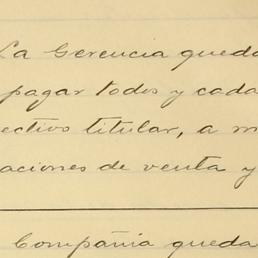 La Gerencia queda
pagar todos y cada
ectivo titular, a m
aciones de venta y
Compañia queda